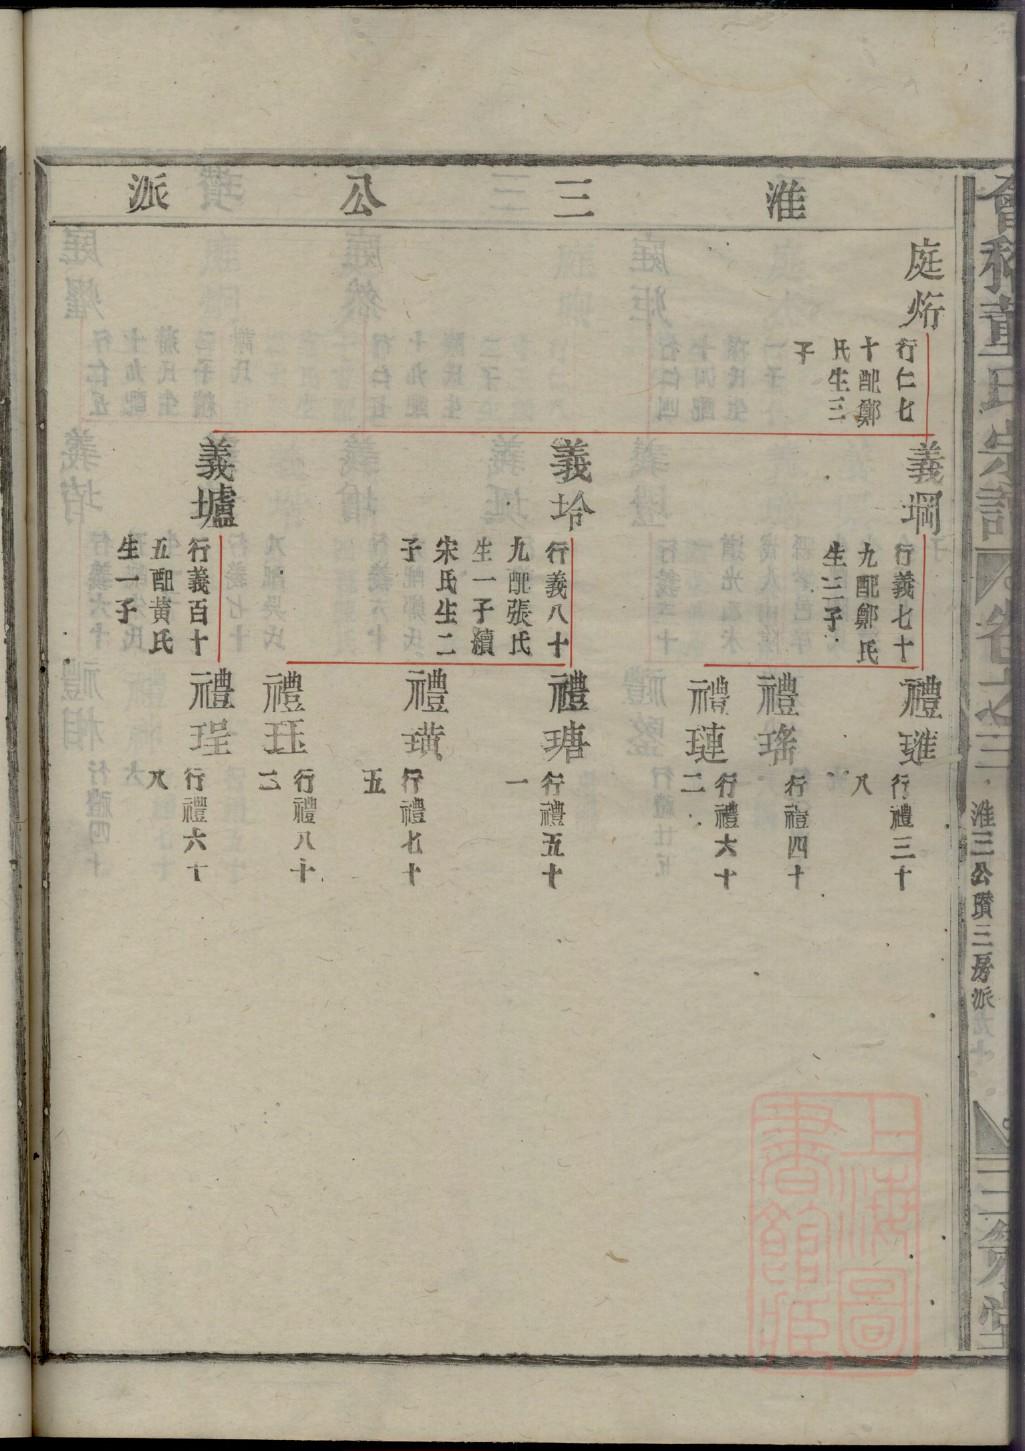 淮三公派
庭烆
行仁七
十配鄭
氏生三
子
義堈
行義七十
九配鄭氏
生三子
義坽
行義八十
九配張氏
生一子續
宋氏生二
子
義壚
行義百十
五配黄氏
生一子
禮璡
行禮三十
八
禮瑤
行禮四十
禮璉
行禮六十
二
禮瑭
行禮五十
一
禮璜
行禮七十
五
禮珏
行禮八十
三
禮珵
行禮六十
八
會稽董氏宗譜
卷之三
淮三公瓚三房派
三策堂
上海圖
書館藏